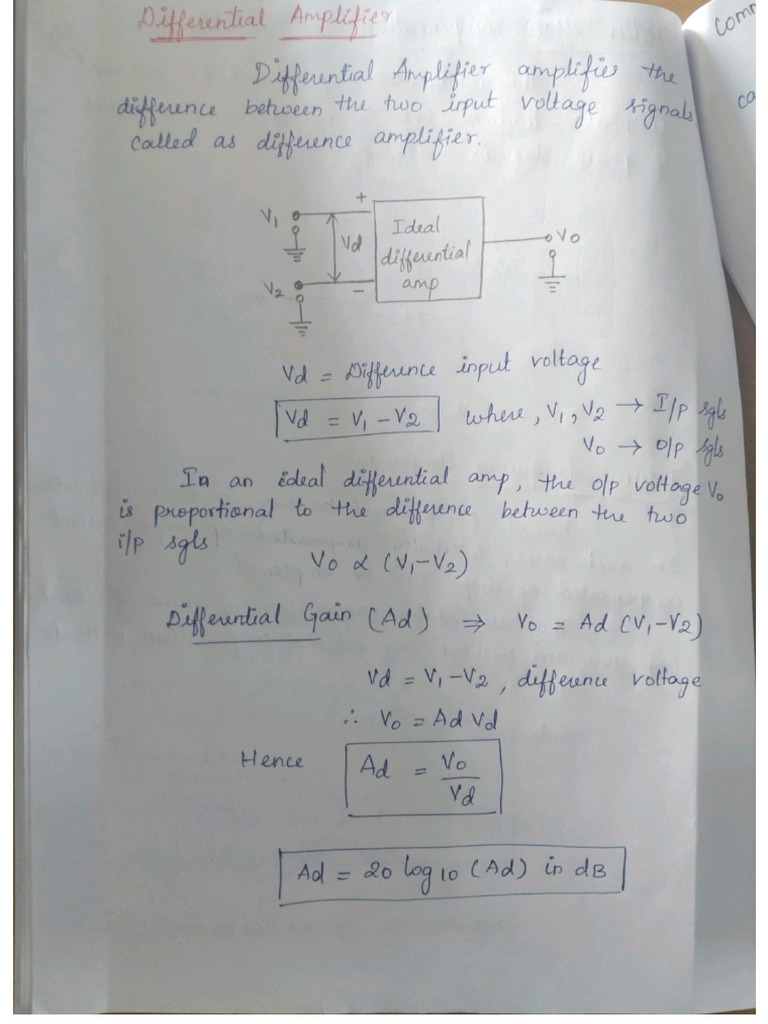 Differential Amplifier
Differential Amplifier amplifies the
difference between the two input voltage signals
called as difference amplifier.
+
V1
Vd
Ideal
differential
amp
Vo
V2
−
Vd = Difference input voltage
Vd = V1 − V2 where, V1, V2 → I/p sgls
Vo → o/p sgls
In an ideal differential amp, the o/p voltage Vo
is proportional to the difference between the two
i/p sgls!
Vo ∝ (V1−V2)
Differential Gain (Ad) ⇒ Vo = Ad (V1−V2)
Vd = V1−V2, difference voltage
∴ Vo = Ad Vd
Hence Ad = Vo
Vd
Ad = 20 log10 (Ad) in dB
ca